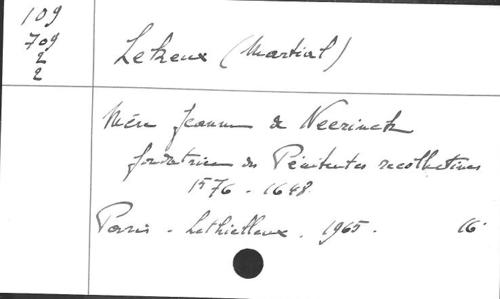 109
709
2
2
Lekeux (Martial)
Mère Jeanne de Neerinck
fondatrice des Pénitentes recollectines
1576 - 1648
Paris - Lethielleux. 1965. 16°